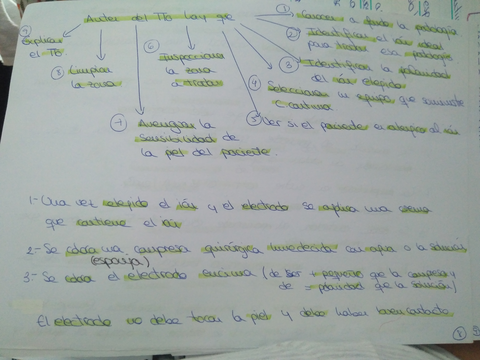 Antes del Tto hay que
① Conocer a fondo la patología
② Identificar el ión ideal
para tratar esa patología
③ Identificar la polaridad
del ión elegido
④ Seleccionar un equipo que suministre
C. continua
⑤ Ver si el paciente es alérgico al ión
⑥ Inspeccionar
la zona
a tratar
⑦ Averiguar la
sensibilidad de
la piel del paciente.
Limpiar
la zona
Explicar
el Tto.
1- Una vez elegido el ión y el electrodo se aplica una crema
que contiene el ión
2- Se coloca una compresa quirúrgica humedecida con agua o la solución
(esponja)
3- Se coloca el electrodo encima (de ser + pequeño que la compresa y
de = polaridad que la solución)
El electrodo no debe tocar la piel y debe haber buen contacto